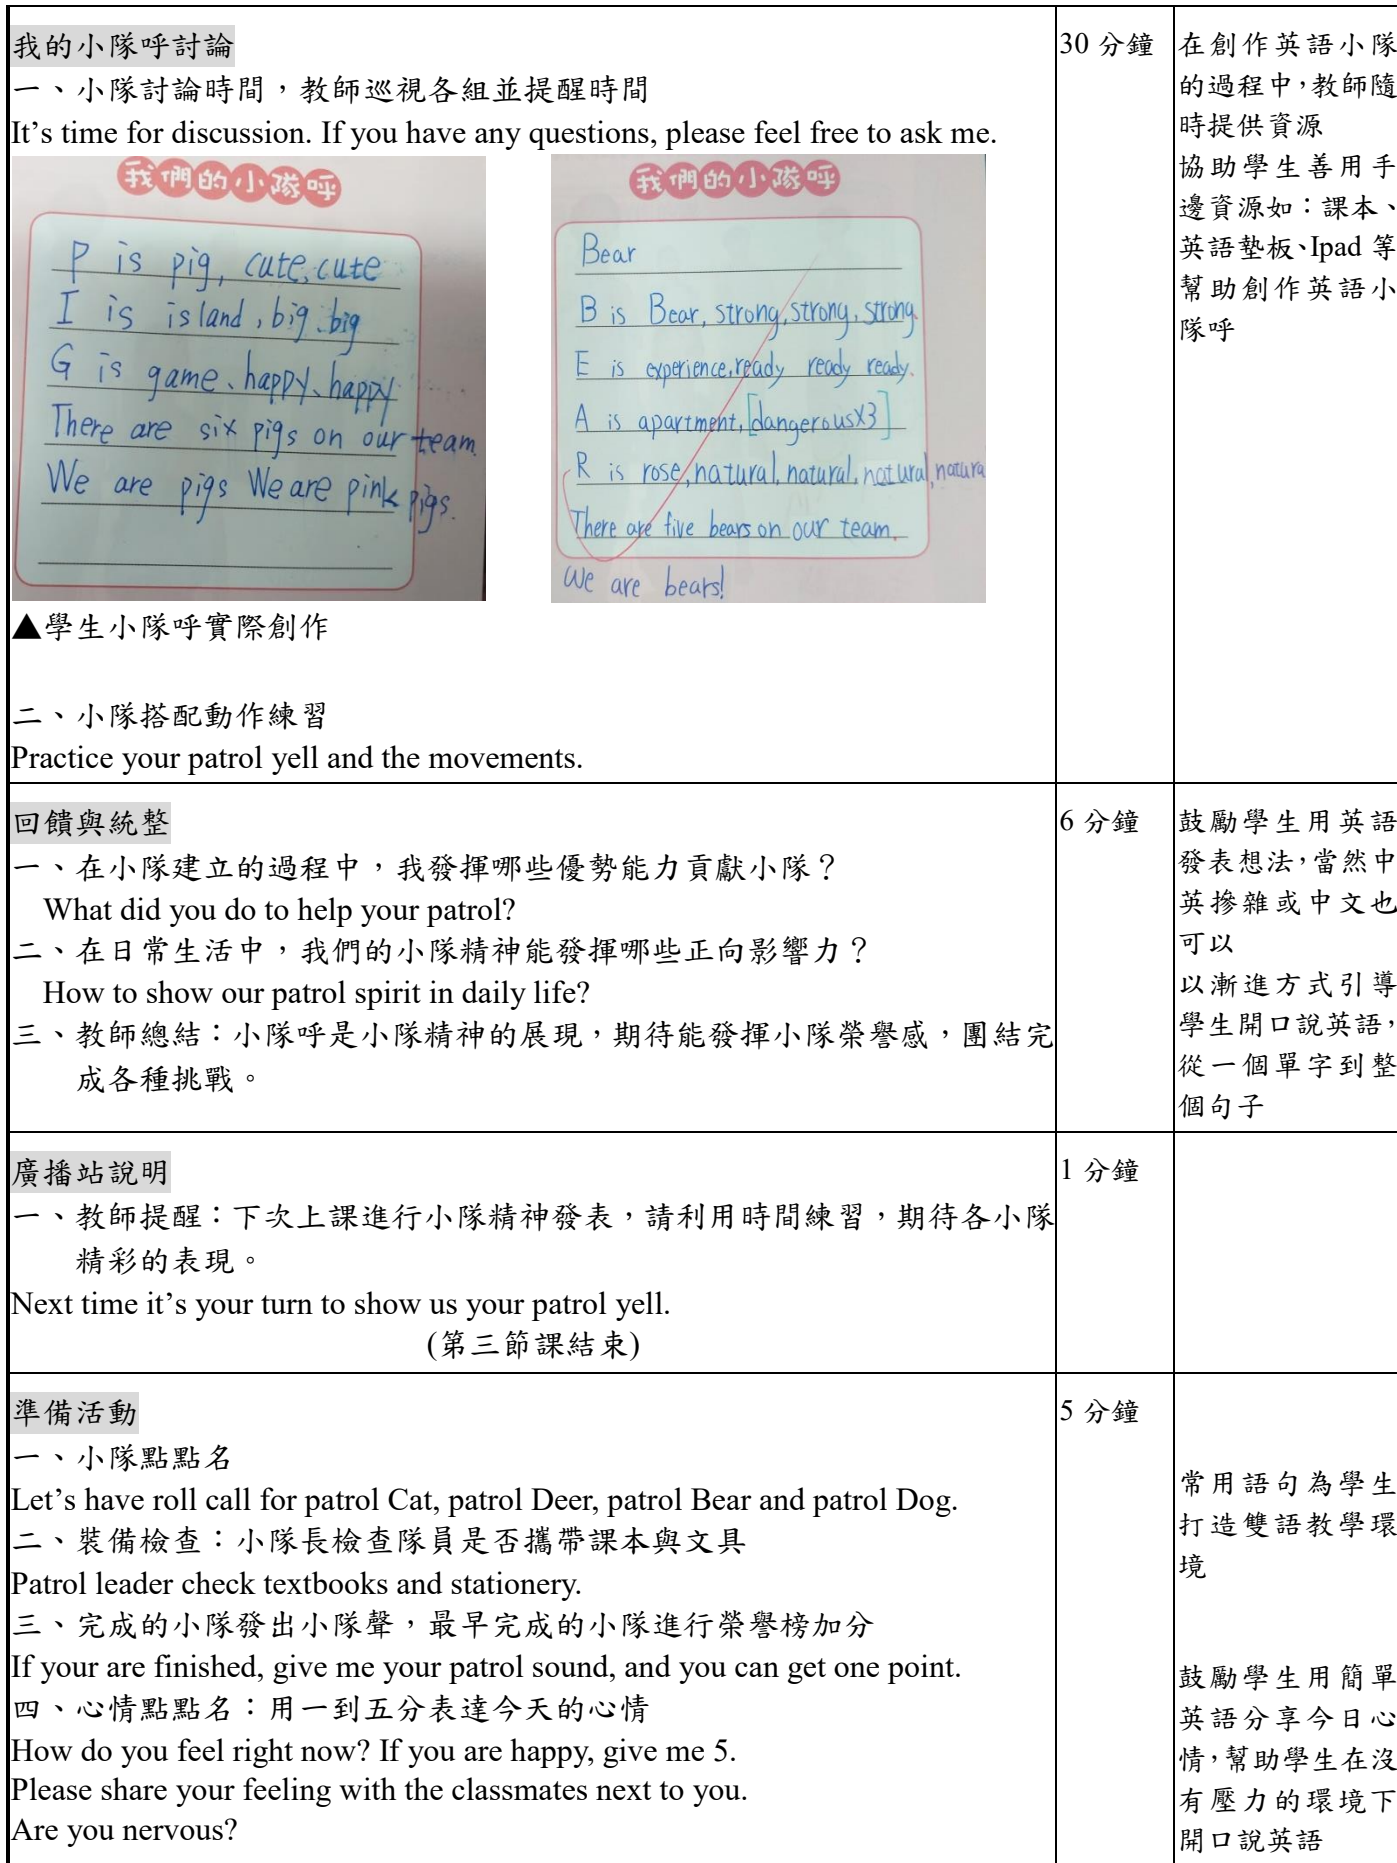 我的小隊呼討論
一、小隊討論時間，教師巡視各組並提醒時間
It’s time for discussion. If you have any questions, please feel free to ask me.
我們的小隊呼
P is pig, cute, cute
I is island, big, big
G is game、happy、happy
There are six pigs on our team.
We are pigs We are pink pigs.
我們的小隊呼
Bear
B is Bear, strong, strong, strong.
E is experience, ready ready ready.
A is apartment, [dangerousX3]
R is rose, natural, natural, natural, natura
There are five bears on our team.
We are bears!
▲學生小隊呼實際創作
二、小隊搭配動作練習
Practice your patrol yell and the movements.
30 分鐘
在創作英語小隊
的過程中，教師隨
時提供資源
協助學生善用手
邊資源如：課本、
英語墊板、Ipad 等
幫助創作英語小
隊呼
回饋與統整
一、在小隊建立的過程中，我發揮哪些優勢能力貢獻小隊？
What did you do to help your patrol?
二、在日常生活中，我們的小隊精神能發揮哪些正向影響力？
How to show our patrol spirit in daily life?
三、教師總結：小隊呼是小隊精神的展現，期待能發揮小隊榮譽感，團結完
成各種挑戰。
6 分鐘
鼓勵學生用英語
發表想法，當然中
英摻雜或中文也
可以
以漸進方式引導
學生開口說英語，
從一個單字到整
個句子
廣播站說明
一、教師提醒：下次上課進行小隊精神發表，請利用時間練習，期待各小隊
精彩的表現。
Next time it’s your turn to show us your patrol yell.
(第三節課結束)
1 分鐘
準備活動
一、小隊點點名
Let’s have roll call for patrol Cat, patrol Deer, patrol Bear and patrol Dog.
二、裝備檢查：小隊長檢查隊員是否攜帶課本與文具
Patrol leader check textbooks and stationery.
三、完成的小隊發出小隊聲，最早完成的小隊進行榮譽榜加分
If your are finished, give me your patrol sound, and you can get one point.
四、心情點點名：用一到五分表達今天的心情
How do you feel right now? If you are happy, give me 5.
Please share your feeling with the classmates next to you.
Are you nervous?
5 分鐘
常用語句為學生
打造雙語教學環
境
鼓勵學生用簡單
英語分享今日心
情，幫助學生在沒
有壓力的環境下
開口說英語